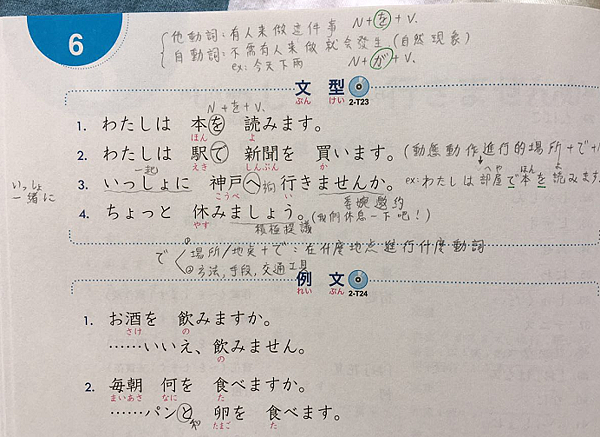 6
他動詞：有人來做這件事 N+を+V.
自動詞：不需有人來做就會發生（自然現象）
ex: 今天下雨 N+が+V.
文型
ぶん けい 2-T23
N+を+V.
1. わたしは 本を 読みます。
ほん よ
2. わたしは 駅で 新聞を 買います。(動態動作進行的場所+で+
えき しんぶん か
一起
いっしょ
一緒に
3. いっしょに 神戸へ 行きませんか。
こうべ い
ex: わたしは部屋で本を読みます
へや ほん よ
委婉邀約
4. ちょっと 休みましょう。(我們休息一下吧！)
やす
積極提議
で ①場所/地点+で：在什麼地点進行什麼動詞
②方法,手段,交通工具
例文
れい ぶん 2-T24
1. お酒を 飲みますか。
さけ の
……いいえ、飲みません。
の
2. 毎朝 何を 食べますか。
まいあさ なに た
……パンと 卵を 食べます。
和 たまご た